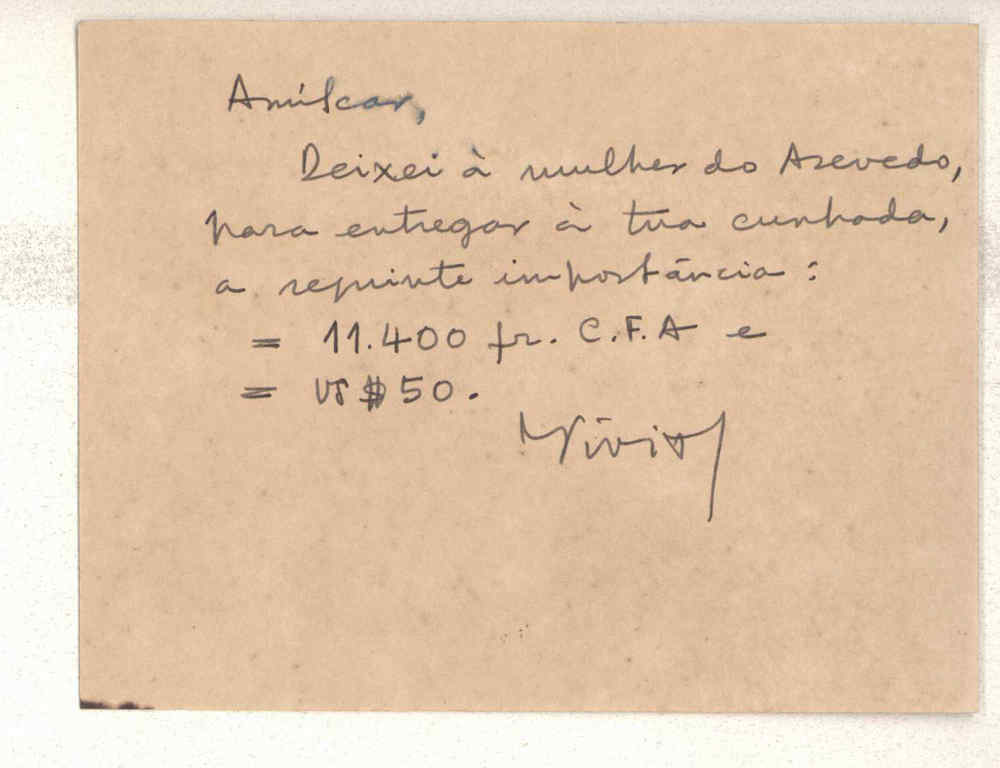 Amílcar,
Deixei à mulher do Azevedo,
para entregar à tua cunhada,
a seguinte importância :
= 11.400 fr. C.F.A e
= US$50.